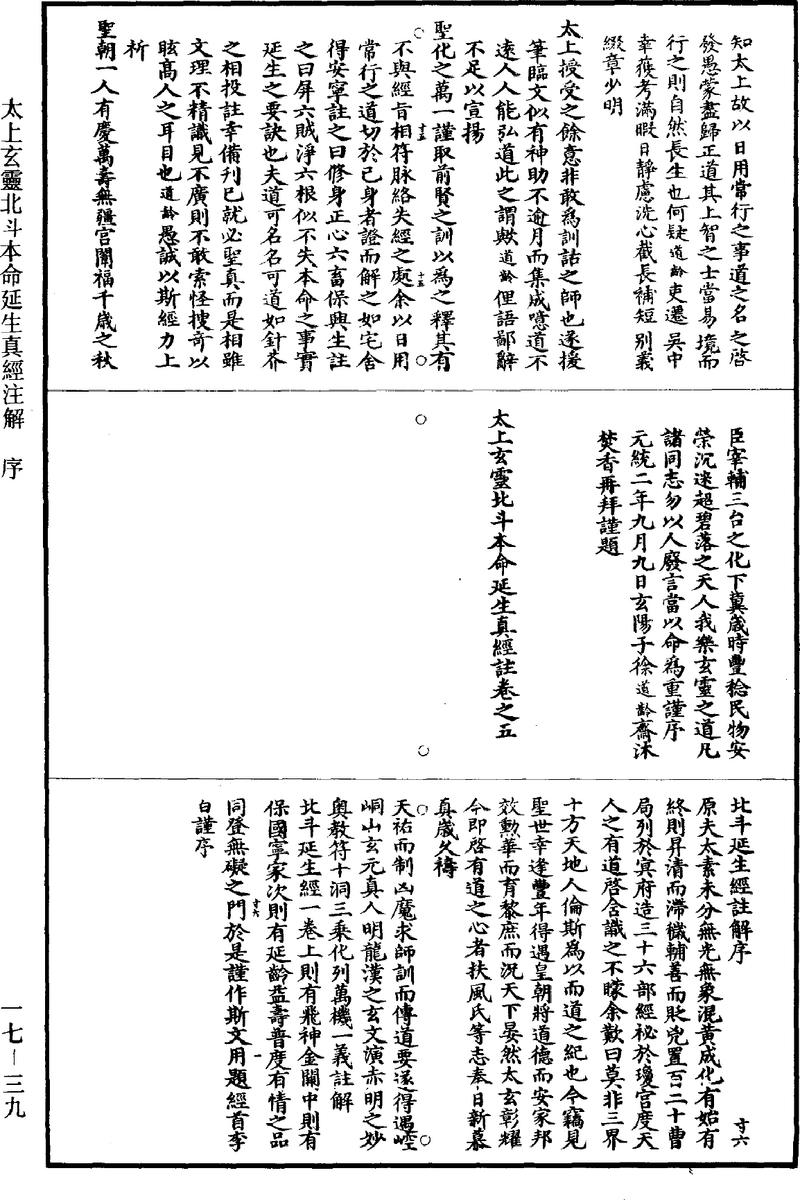 太上玄靈北斗本命延生真經注解　序
一七—三九
知太上故以日用常行之事道之名之啓
發愚蒙盡歸正道其上智之士當易撓而
行之則自然長生也何疑道齡吏遷吳中
幸獲考滿暇日靜慮洗心截長補短別義
綴章少明
太上授受之餘意非敢為訓詁之師也遂援
筆臨文似有神助不逾月而集成噫道不
遠人人能弘道此之謂歟道齡俚語鄙辭
不足以宣揚
聖化之萬一謹取前賢之訓以為之釋其有
不與經旨相符脉絡失經之處余以日用
常行之道切於己身者證而解之如宅舍
得安寧註之曰修身正心六畜保興生註
之曰屏六賊淨六根似不失本命之事實
延生之要訣也夫道可名名可道如針芥
之相投註幸備刊已就必聖真而是相雖
文理不精識見不廣則不敢索怪搜奇以
眩高人之耳目也道齡愚誠以斯經力上
祈
聖朝一人有慶萬壽無疆宫闈福千歲之秋
十五
臣宰輔三台之化下冀歲時豐稔民物安
榮沉迷超碧落之天人我樂玄靈之道凡
諸同志勿以人廢言當以命為重謹序
元統二年九月九日玄陽子徐道齡齋沐
焚香再拜謹題
太上玄靈北斗本命延生真經註卷之五
北斗延生經註解序
寸六
原夫太素未分無光無象混黄成化有始有
終則昇清而滯穢輔善而貶兇置百二十曹
局列於冥府造三十六部經祕於瓊宫度天
人之有道啓含識之不矇余歎曰莫非三界
十方天地人倫斯為以而道之紀也今竊見
聖世幸逢豐年得遇皇朝將道德而安家邦
效勳華而育黎庶而況天下晏然太玄彰耀
今即啓有道之心者扶風氏等志奉日新慕
真歲久禱
天祐而制凶魔求師訓而傳道要遂得遇崆
峒山玄元真人明龍漢之玄文演赤明之妙
奥教符十洞三乘化列萬機一義註解
北斗延生經一卷上則有飛神金闕中則有
保國寧家次則有延齡益壽普度有情之品
同登無礙之門於是謹作斯文用題經首李
白謹序